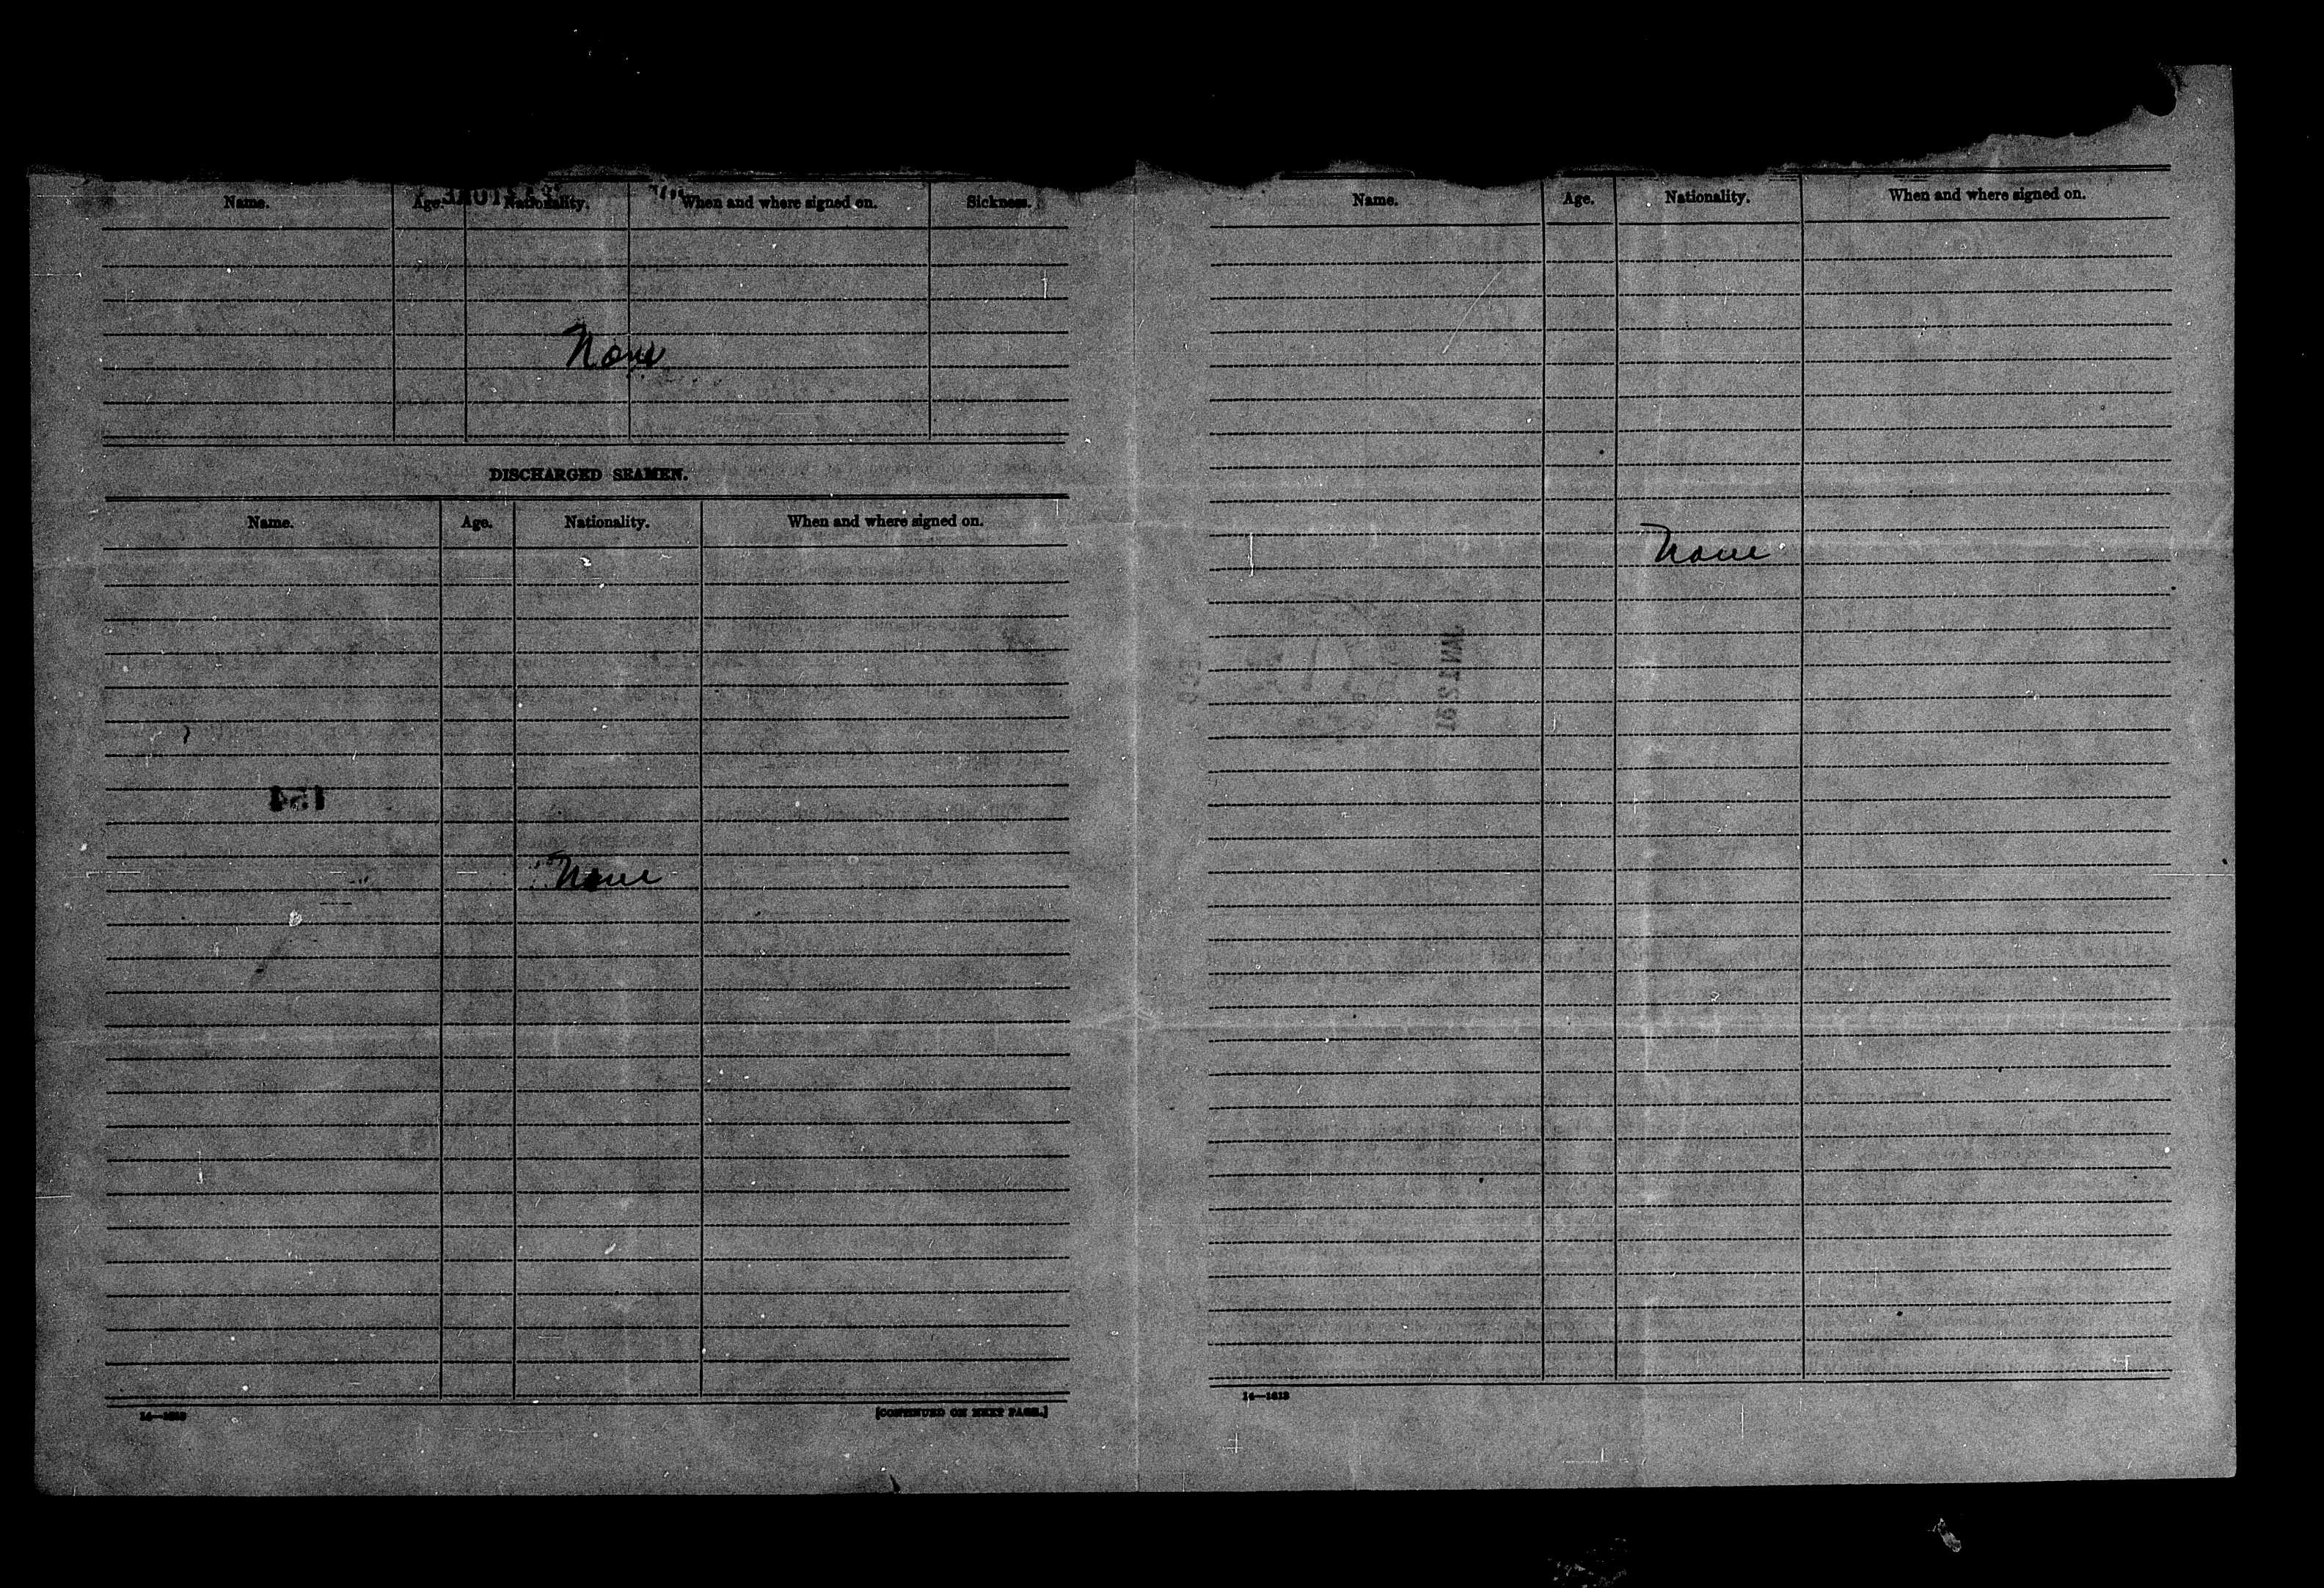 Name. Age. Nationality. When and where signed on. Sickness.
None
DISCHARGED SEAMEN.
Name. Age. Nationality. When and where signed on.
None
14—1613
[CONTINUED ON NEXT PAGE.]
Name. Age. Nationality. When and where signed on.
None
14—1613